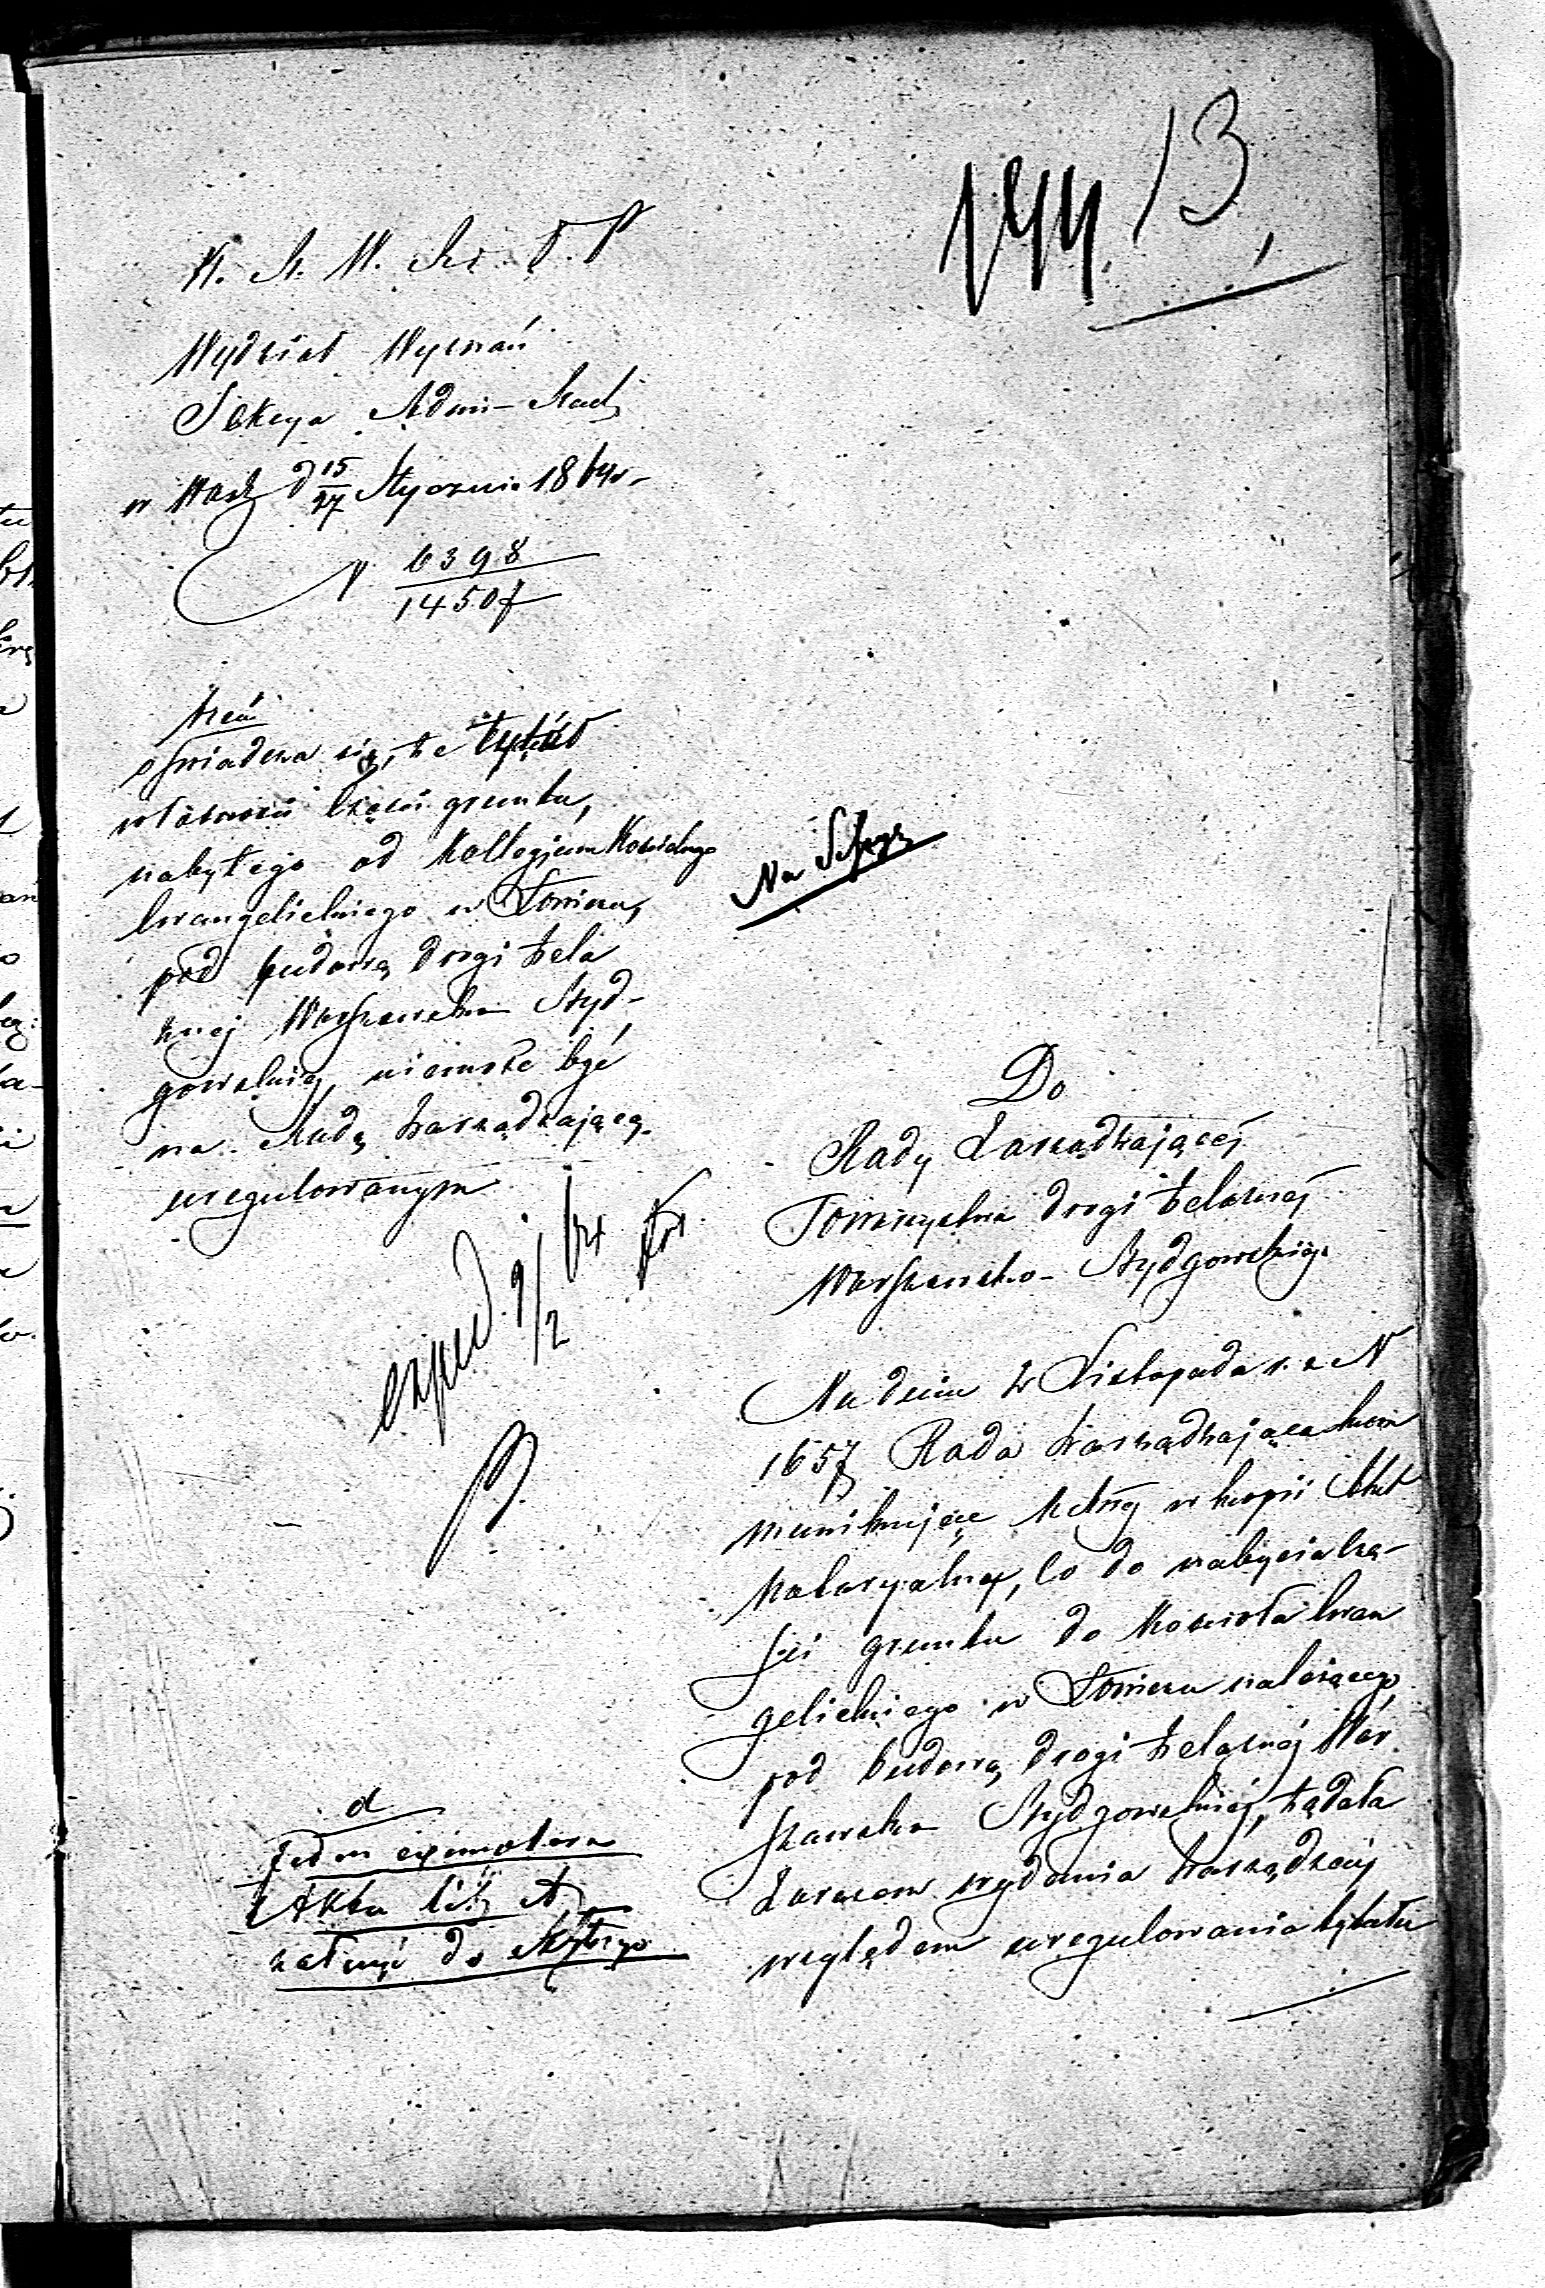 144. 13
K. R. W. R. i O. P
Wydział Wyznań
Sekcya Adm- Rach
w Warsz d 15/27 Stycznia 1864 r
N 6398/14507
treść
oświadcza się, że tytuł
własności części gruntu,
nabytego od Kollegjum Kościelnego
Ewangelickiego w Łowiczu,
pod budowę drogi żela
znej Warszawsko Byd-
goskiéj, niemoże być
na Radę Zarządzającą
uregulowanym
exped. 9/2 64
Na Sessyę
Do
Rady Zarządzającéj
Towarzystwa drogi żelaznéj
Warszawsko- Bydgoskiéj
Na dniu Listopada r. z N
1657 Rada Zarządzająca kom
munikując w kopii Akt
co do nabycia czę-
ści gruntu do Kościoła Ewan
gelickiego w Łowiczu należącego,
pod budowę drogi żelaznéj War
szawsko Bydgoskiéj, żądała
zarazem wydania Zarządzeń
względem uregulowania tytułu
d
Jeden exemplarz
Aktu lit A
do